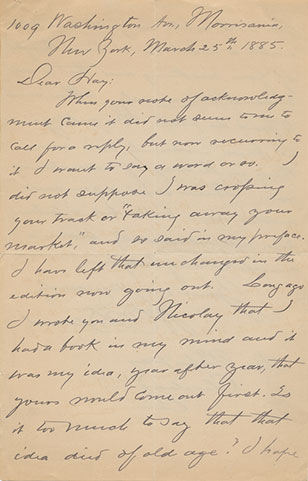 1009 Washington Av., Morrisania,
New York, March 25th, 1885.
Dear Hay:
When your note of acknowledg-
ment came it did not seem to me to
call for a reply, but now recurring to
it I want to say a word or so. I
did not suppose I was crossing
your track or "taking away your
market," and so said in my preface.
I have left that unchanged in the
edition now going out. Long ago
I wrote you and Nicolay that I
had a book in my mind and it
was my idea, year after year, that
yours would come out first. Is
it too much to say that that
idea died of old age? I hope